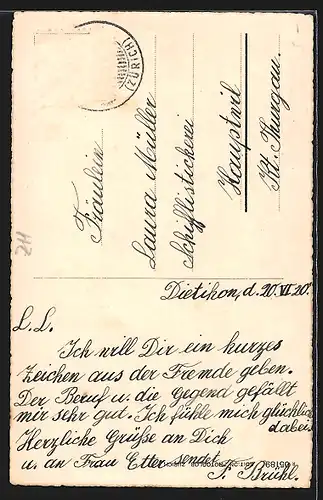 (ZÜRICH)
Fräulein
Laura Müller
Schifflistickerei
Hauptwil
Kt. Thurgau.
Dietikon, d. 20. VI. 20.
L. L.
Ich will Dir ein kurzes
Zeichen aus der Fremde geben.
Der Beruf u. die Gegend gefällt
mir sehr gut. Ich fühle mich glücklich
dabei.
Herzliche Grüße an Dich
u. an Frau Etter sendet
F. Brühl.
211